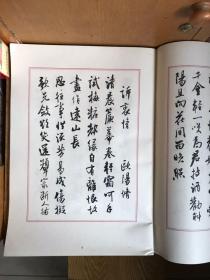 千金輕一笑為君持酒勸斜
陽且向花間留晚照
訴衷情　歐陽脩
清晨簾幕卷輕霜呵手
試梅粧都緣自有離恨故
畫作遠山長
思往事惜流芳易成傷擬
歌先斂欲笑還顰最斷人腸